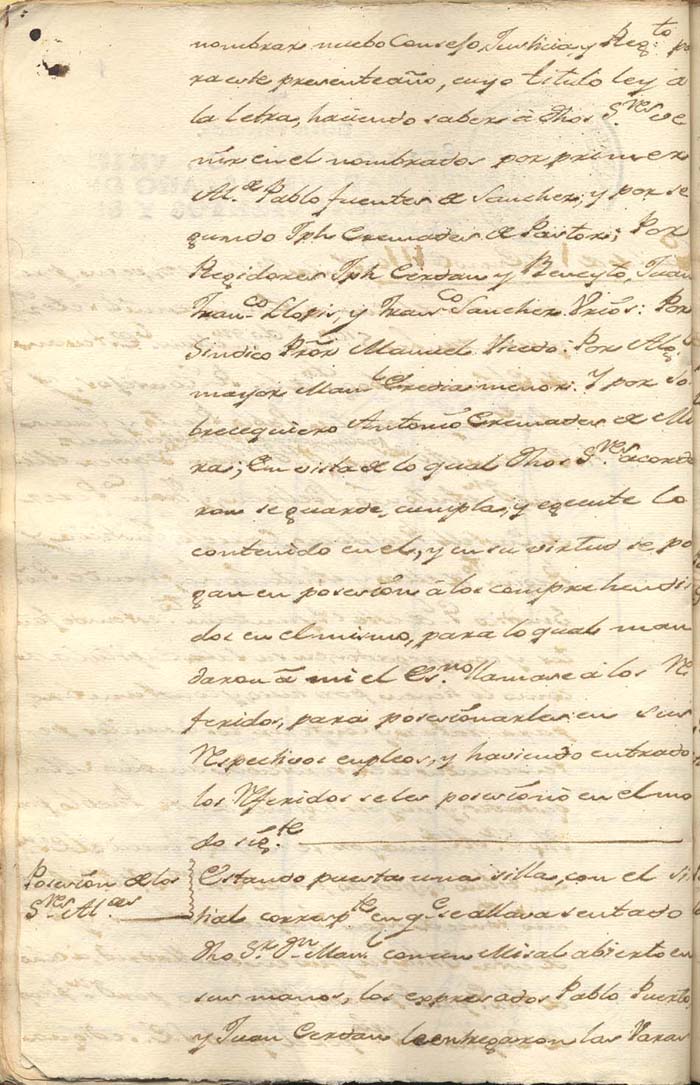 nombrar nuebo Consejo, Justicia, y Reg.to pa
ra este presente año, cuyo titulo leý a
la letra, haciendo saber â dhos S.res ve
nir en el nombrados por primer
Al.e Pablo fuentes de Sanchez; y por se
gundo Jph Cremades de Pastor; Por
Regidores Jph Cerdan y Beneyto, Juan
Fran.co Llopis, y Fran.co Sanchez Urios: Por
Sindico Pror Manuel Vicedo: Por Alg.l
mayor Man.l Eredia menor: Y por so
brecequiero Antonio Cremades de Mi
ra; En vista de lo qual dhos S.res acorda
ron se guarde, cumpla, y egecute lo
contenido en el, y en su virtud se po
gan en posesion â los comprehendi
dos en el mismo, para lo qual man
daron â mi el Es.no llamase â los Re
feridos, para posesionarles en sus
Respectivos empleos, y haviendo entrado
los Referidos se les posesionó en el mo
do sig.te
Posesion de los
S.res Al.des
Estando puesta una silla, con el si
tial corresp.te en q.e se allava sentado
dho S.r D.n Man.l con un Misal abierto en
sus manos, los expresados Pablo Puerto
y Juan Cerdan le entregaron las Varas